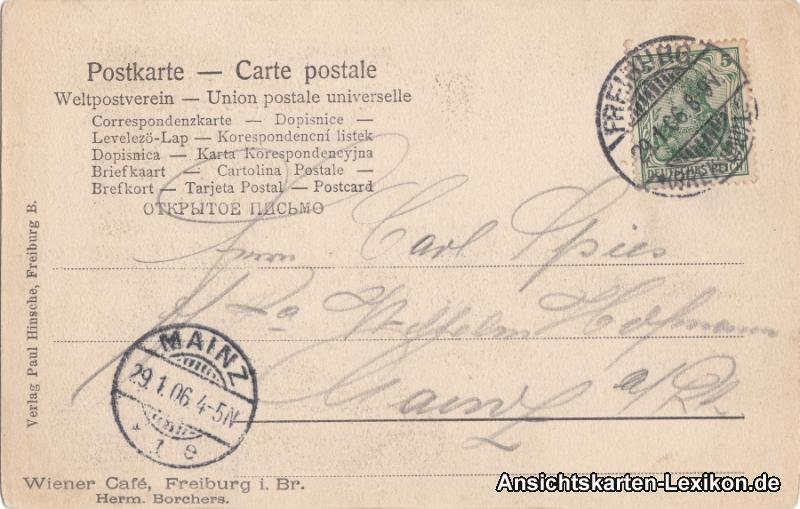 Postkarte — Carte postale
Weltpostverein — Union postale universelle
Correspondenzkarte — Dopisnice —
Levelezö-Lap — Korespondencní listek
Dopisnica — Karta Korespondencyjna
Briefkaart — Cartolina Postale —
Brefkort — Tarjeta Postal — Postcard
ОТКРЫТОЕ ПИСЬМО
FREIBURG
29.1.06.8-9V
5
Herrn Carl Spies
Wilhelm Hofmann
Mainz a/Rh
MAINZ
29.1.06.4-5N
* 1 e
Verlag Paul Hinsche, Freiburg B.
Wiener Café, Freiburg i. Br.
Herm. Borchers.
Ansichtskarten-Lexikon.de